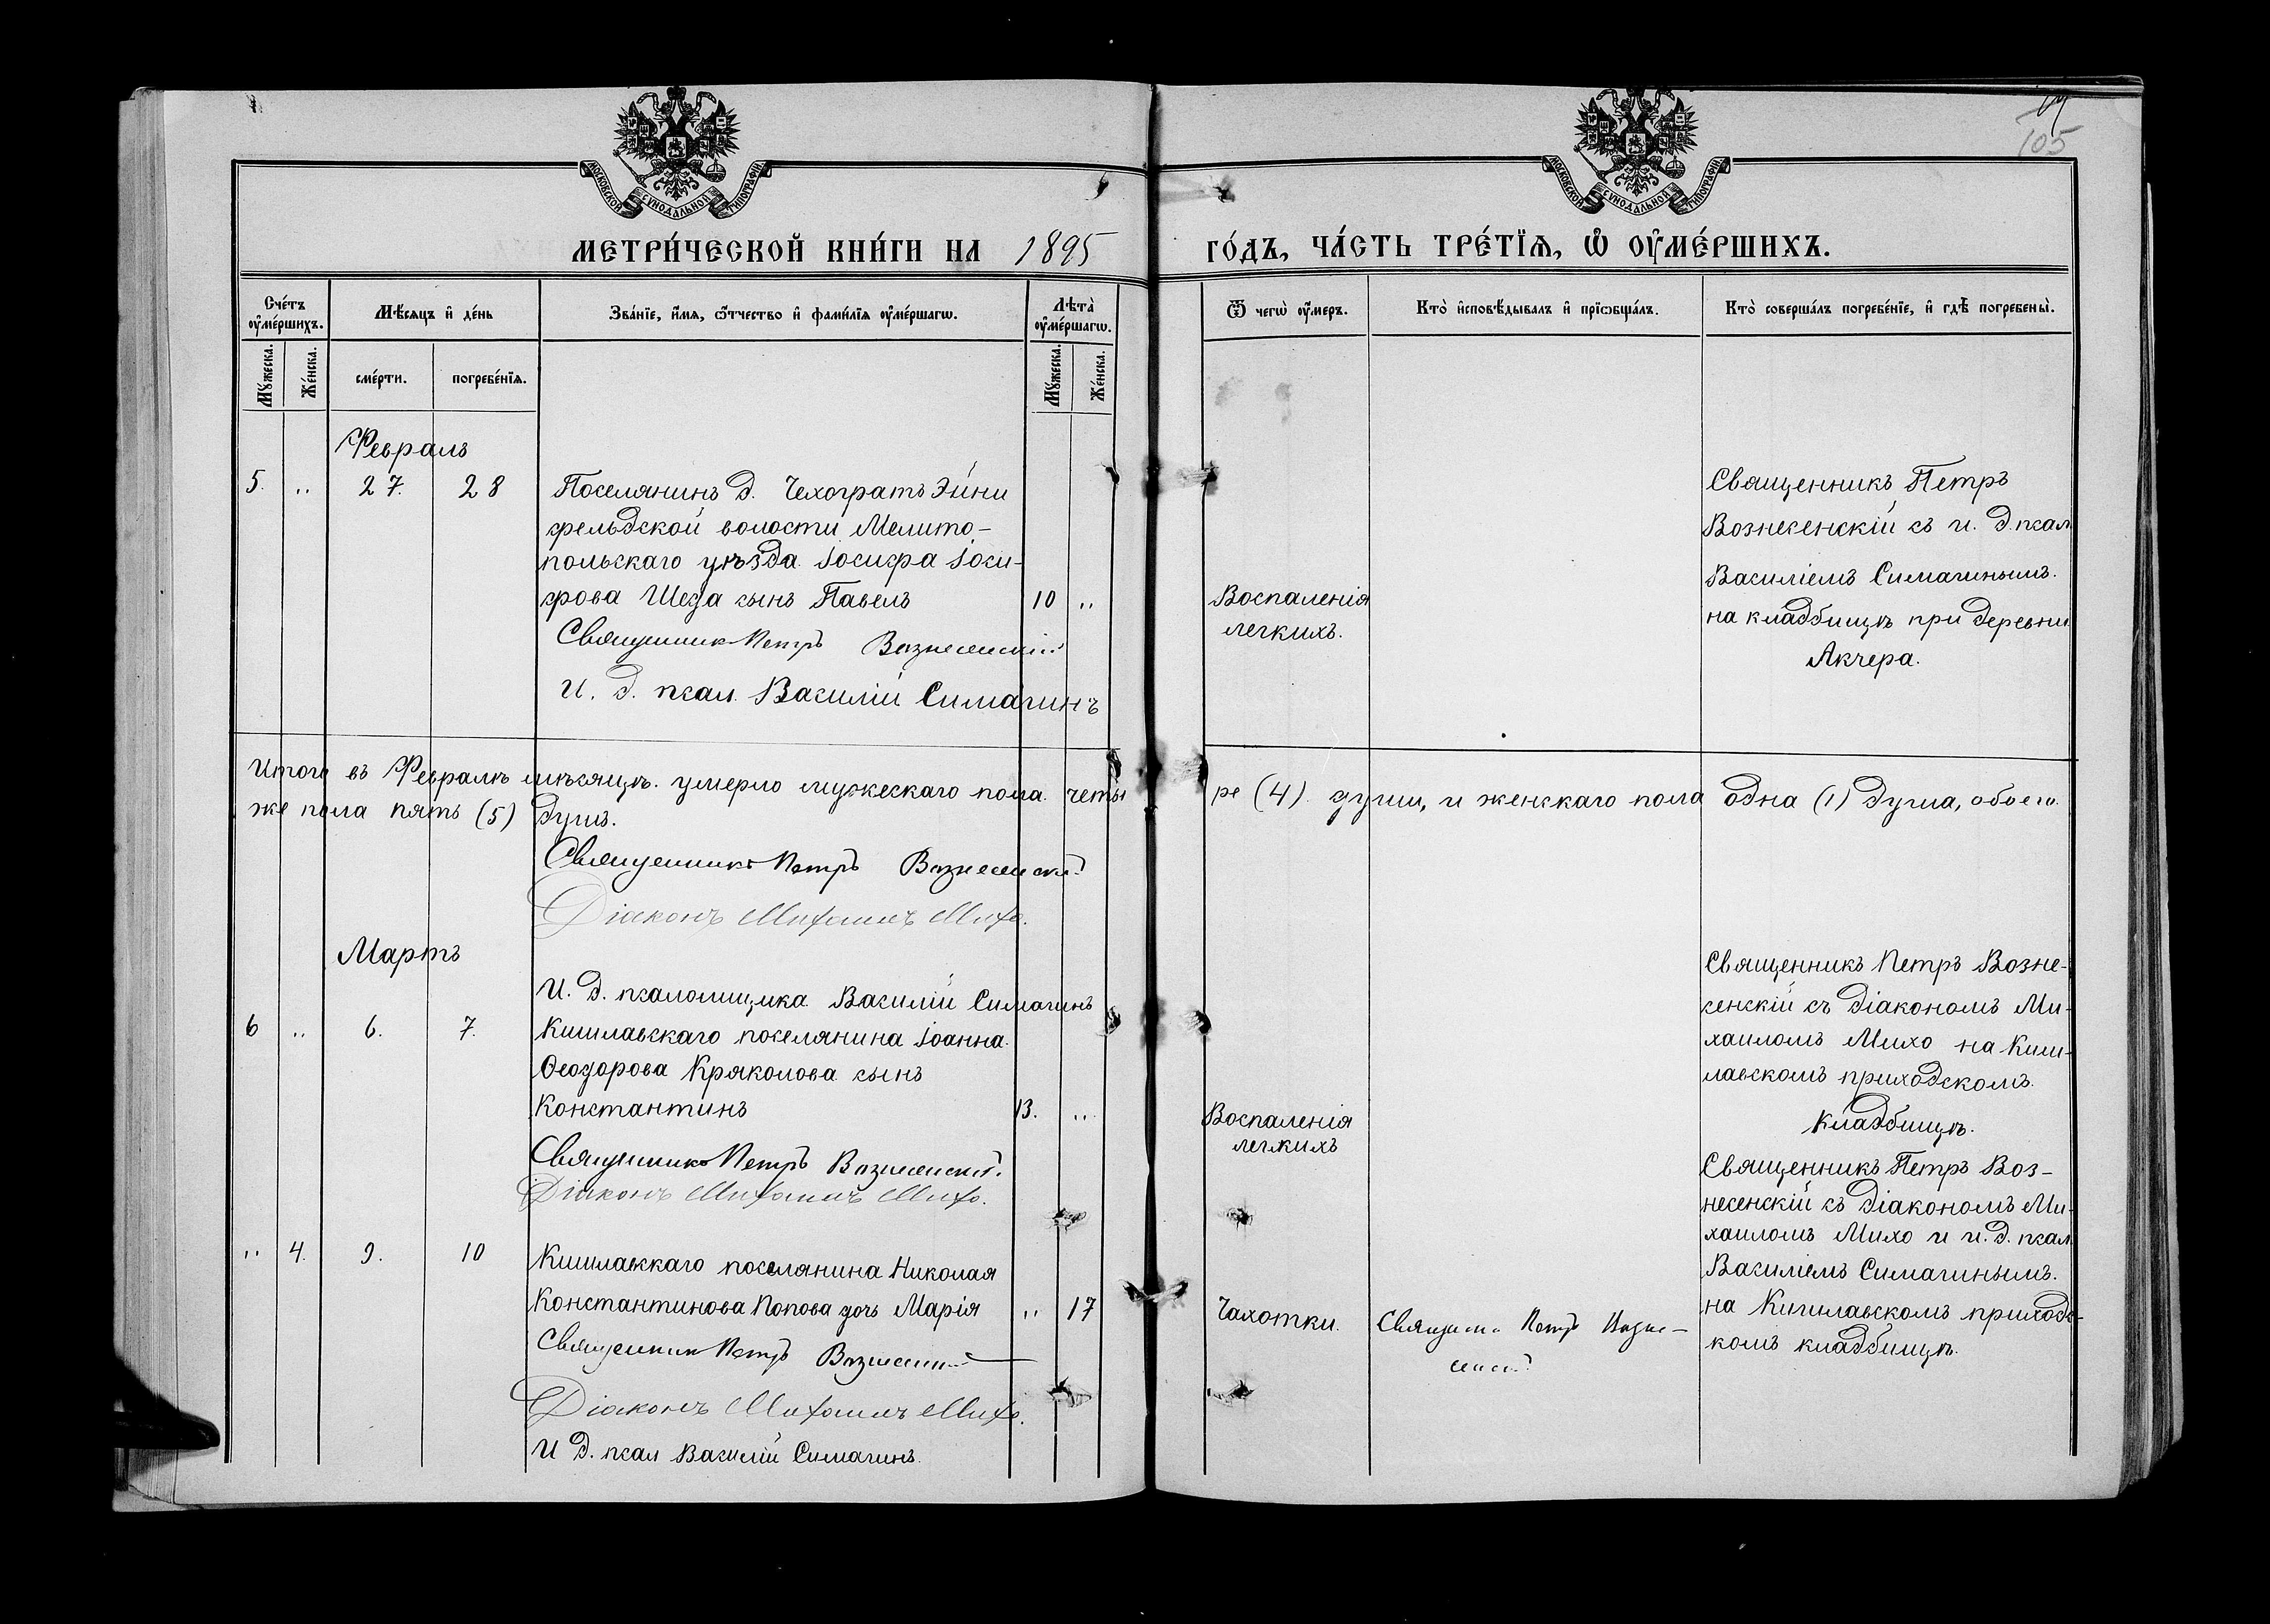 105
МОСКОВСКОЙ СУНОДАЛЬНОЙ ТИПОГРАФІИ
МОСКОВСКОЙ СУНОДАЛЬНОЙ ТИПОГРАФІИ
МЕТРИ́ЧЕСКОЙ КНИ́ГИ НА 1895
ГО́ДЪ, ЧА́СТЬ ТРЕ́ТЇѦ, Ѡ҆ ОУ҆МЕ́РШИХЪ.
Сче́тъ оу҆ме́ршихъ.
Мѣ́сѧцъ и҆ де́нь
Зва́нїе, и҆́мѧ, ѻ҆́тчество и҆ фами́лїѧ оу҆ме́ршагѡ.
Лѣта̀ оу҆ме́ршагѡ.
Ѿ чегѡ̀ оу҆́меръ.
Кто̀ и҆сповѣ́дывалъ и҆ прїѡбща́лъ.
Кто̀ соверша́лъ погребе́нїе, и҆ гдѣ̀ погребены̀.
Мꙋ́жеска.
Же́нска.
сме́рти.
погребе́нїѧ.
Мꙋ́жеска.
Же́нска.
Февраль
5. „ 27. 28 Поселянинъ д. Чехоградъ Эйни
фельдской волости Мелито-
польскаго уѣзда Іосифа Іоси-
фова Шеда сынъ Павелъ 10 „
Священник Петръ Вознесенскій
И. д. псал. Василій Симагинъ
Воспаленія
легкихъ.
Священникъ Петръ
Вознесенскій съ и. д. псал.
Василіемъ Симагинымъ.
на кладбищѣ при деревни
Акчера.
Итого въ Февралѣ мѣсяцѣ умерло мужескаго пола четы
ре (4) души, и женскаго пола одна (1) душа, обоего
же пола пять (5) душъ.
Священникъ Петръ Вознесенскій
Діаконъ Михаилъ Михо.
Мартъ
И. д. псаломщика Василій Симагинъ
6 „ 6. 7. Кишлавскаго поселянина Іоанна
Ѳеодорова Кряколова сынъ
Константинъ 13. „
Священникъ Петръ Вознесенскій.
Діаконъ Михаилъ Михо.
Воспаленія
легкихъ
Священникъ Петръ Возне-
сенскій съ діакономъ Ми-
хаиломъ Михо на Киш-
лавскомъ приходскомъ
кладбищѣ.
„ 4. 9. 10 Кишлавскаго поселянина Николая
Константинова Попова дочь Марія „ 17
Священник Петръ Вознесенскій
Діаконъ Михаилъ Михо.
И д. псал Василій Симагинъ.
Чахотки.
Священник Петръ Возне-
сенскій
Священникъ Петръ Воз-
несенскій съ діакономъ Ми-
хаиломъ Михо и и. д. псал.
Василіемъ Симагинымъ.
на Кишлавскомъ приходс-
комъ кладбищѣ.